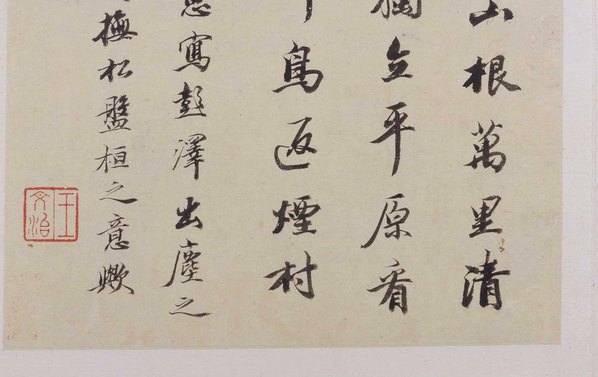 山根萬里清
獨立平原看
鳥返煙村
寫彭澤出塵之
撫松盤桓之意歟
王文治